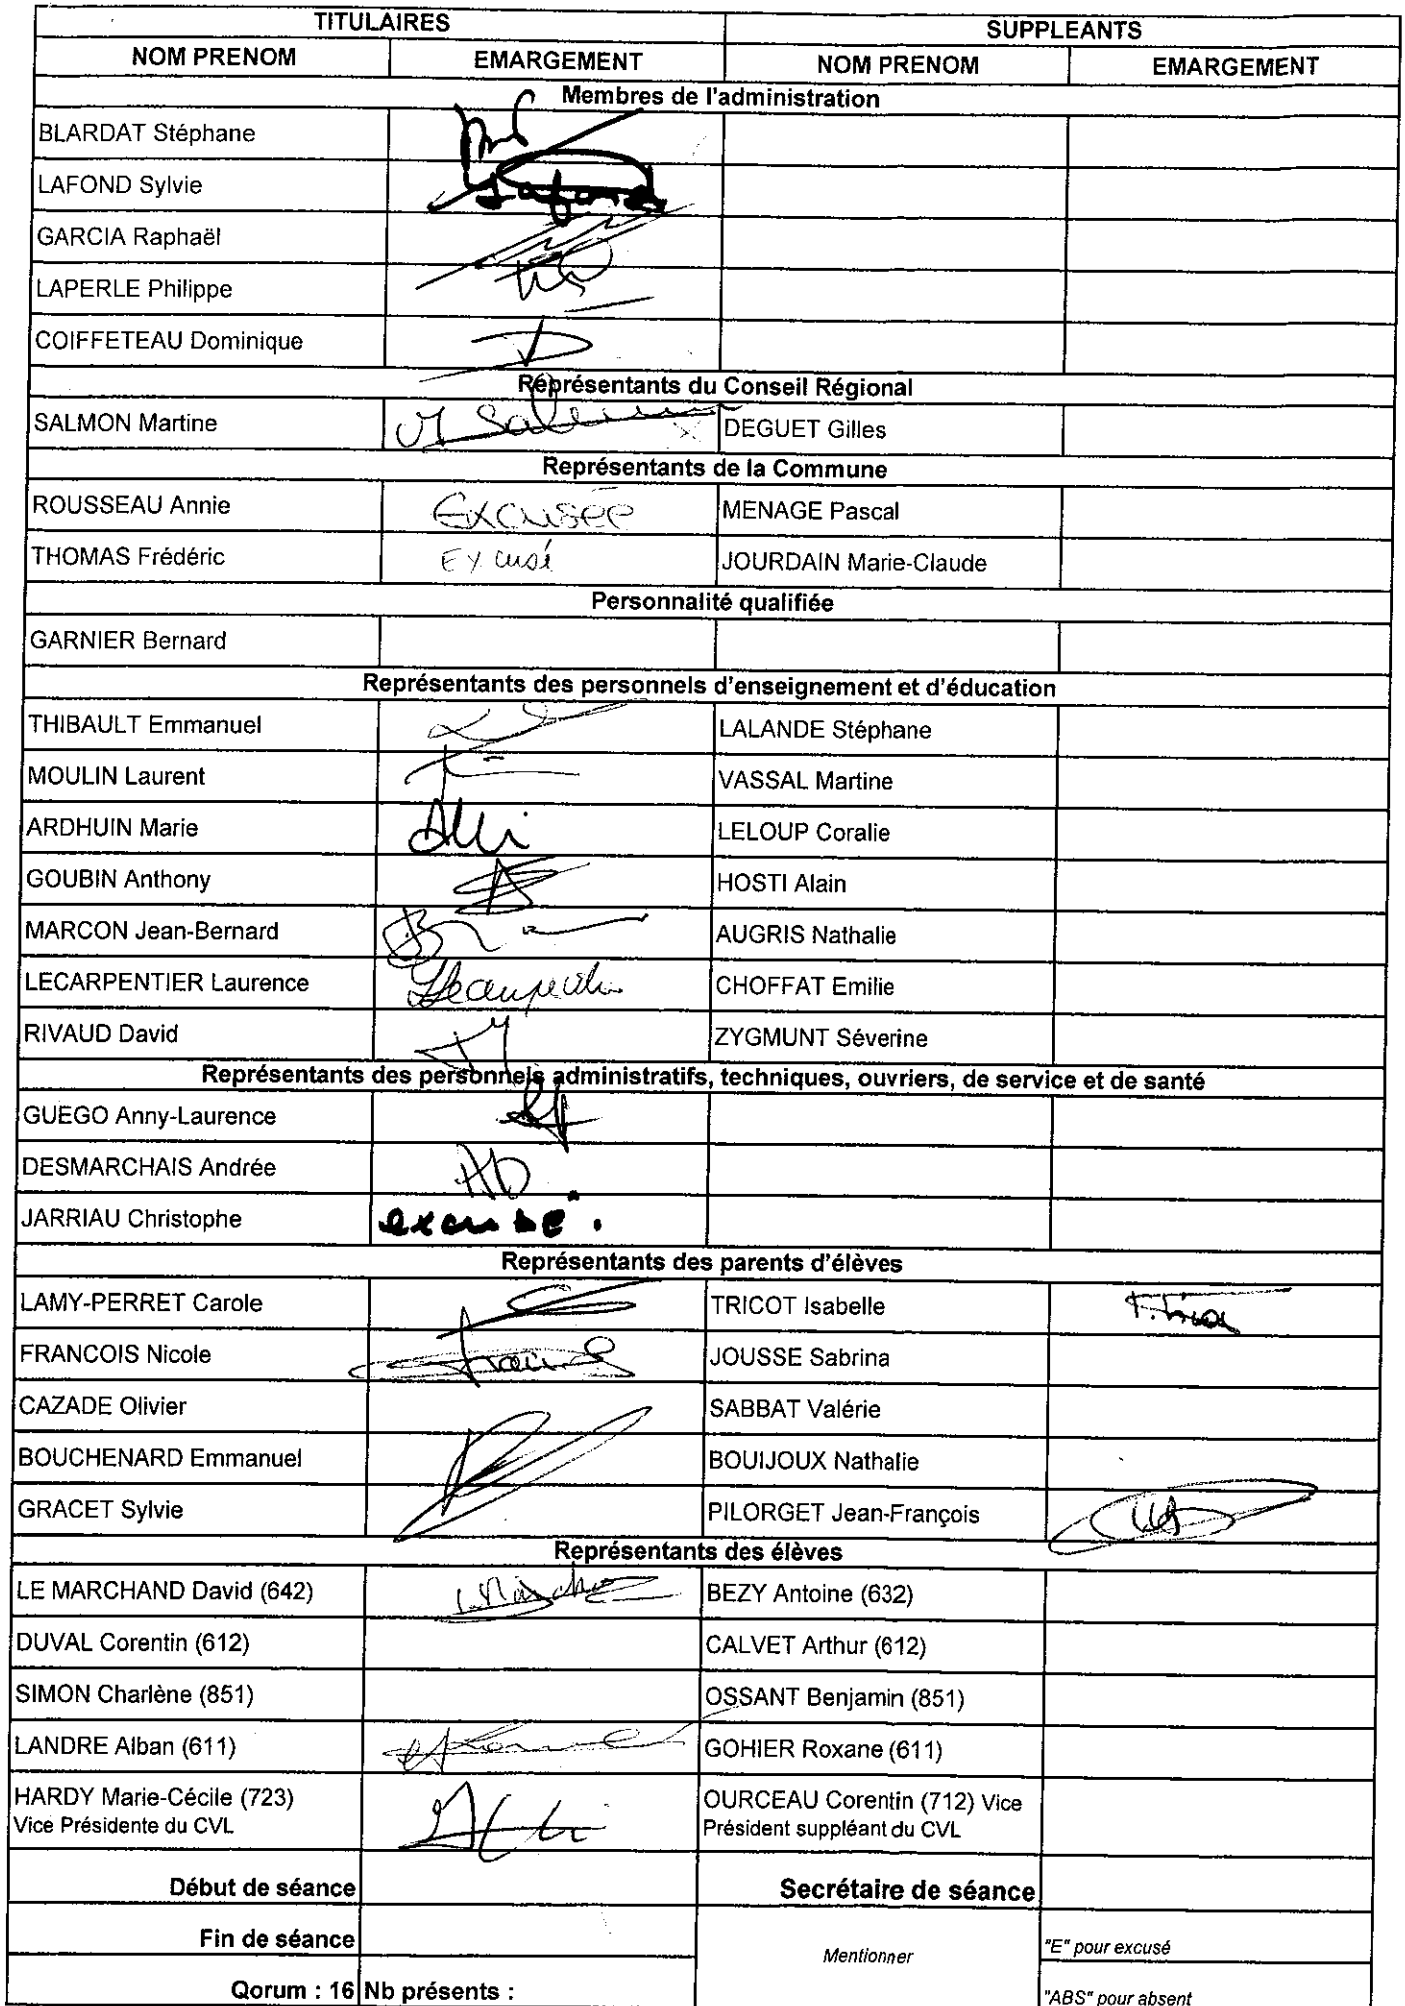 TITULAIRES SUPPLEANTS
NOM PRENOM EMARGEMENT NOM PRENOM EMARGEMENT
Membres de l'administration
BLARDAT Stéphane
LAFOND Sylvie Lafond
GARCIA Raphaël
LAPERLE Philippe
COIFFETEAU Dominique
Réprésentants du Conseil Régional
SALMON Martine M Salmon DEGUET Gilles
Représentants de la Commune
ROUSSEAU Annie Excusée MENAGE Pascal
THOMAS Frédéric Excusé JOURDAIN Marie-Claude
Personnalité qualifiée
GARNIER Bernard
Représentants des personnels d'enseignement et d'éducation
THIBAULT Emmanuel LALANDE Stéphane
MOULIN Laurent VASSAL Martine
ARDHUIN Marie LELOUP Coralie
GOUBIN Anthony HOSTI Alain
MARCON Jean-Bernard AUGRIS Nathalie
LECARPENTIER Laurence CHOFFAT Emilie
RIVAUD David ZYGMUNT Séverine
Représentants des personnels administratifs, techniques, ouvriers, de service et de santé
GUEGO Anny-Laurence
DESMARCHAIS Andrée AD
JARRIAU Christophe excusé.
Représentants des parents d'élèves
LAMY-PERRET Carole TRICOT Isabelle
FRANCOIS Nicole JOUSSE Sabrina
CAZADE Olivier SABBAT Valérie
BOUCHENARD Emmanuel BOUIJOUX Nathalie
GRACET Sylvie PILORGET Jean-François
Représentants des élèves
LE MARCHAND David (642) BEZY Antoine (632)
DUVAL Corentin (612) CALVET Arthur (612)
SIMON Charlène (851) OSSANT Benjamin (851)
LANDRE Alban (611) GOHIER Roxane (611)
HARDY Marie-Cécile (723) OURCEAU Corentin (712) Vice
Vice Présidente du CVL Président suppléant du CVL
Début de séance Secrétaire de séance
Fin de séance Mentionner "E" pour excusé
Qorum : 16 Nb présents : "ABS" pour absent